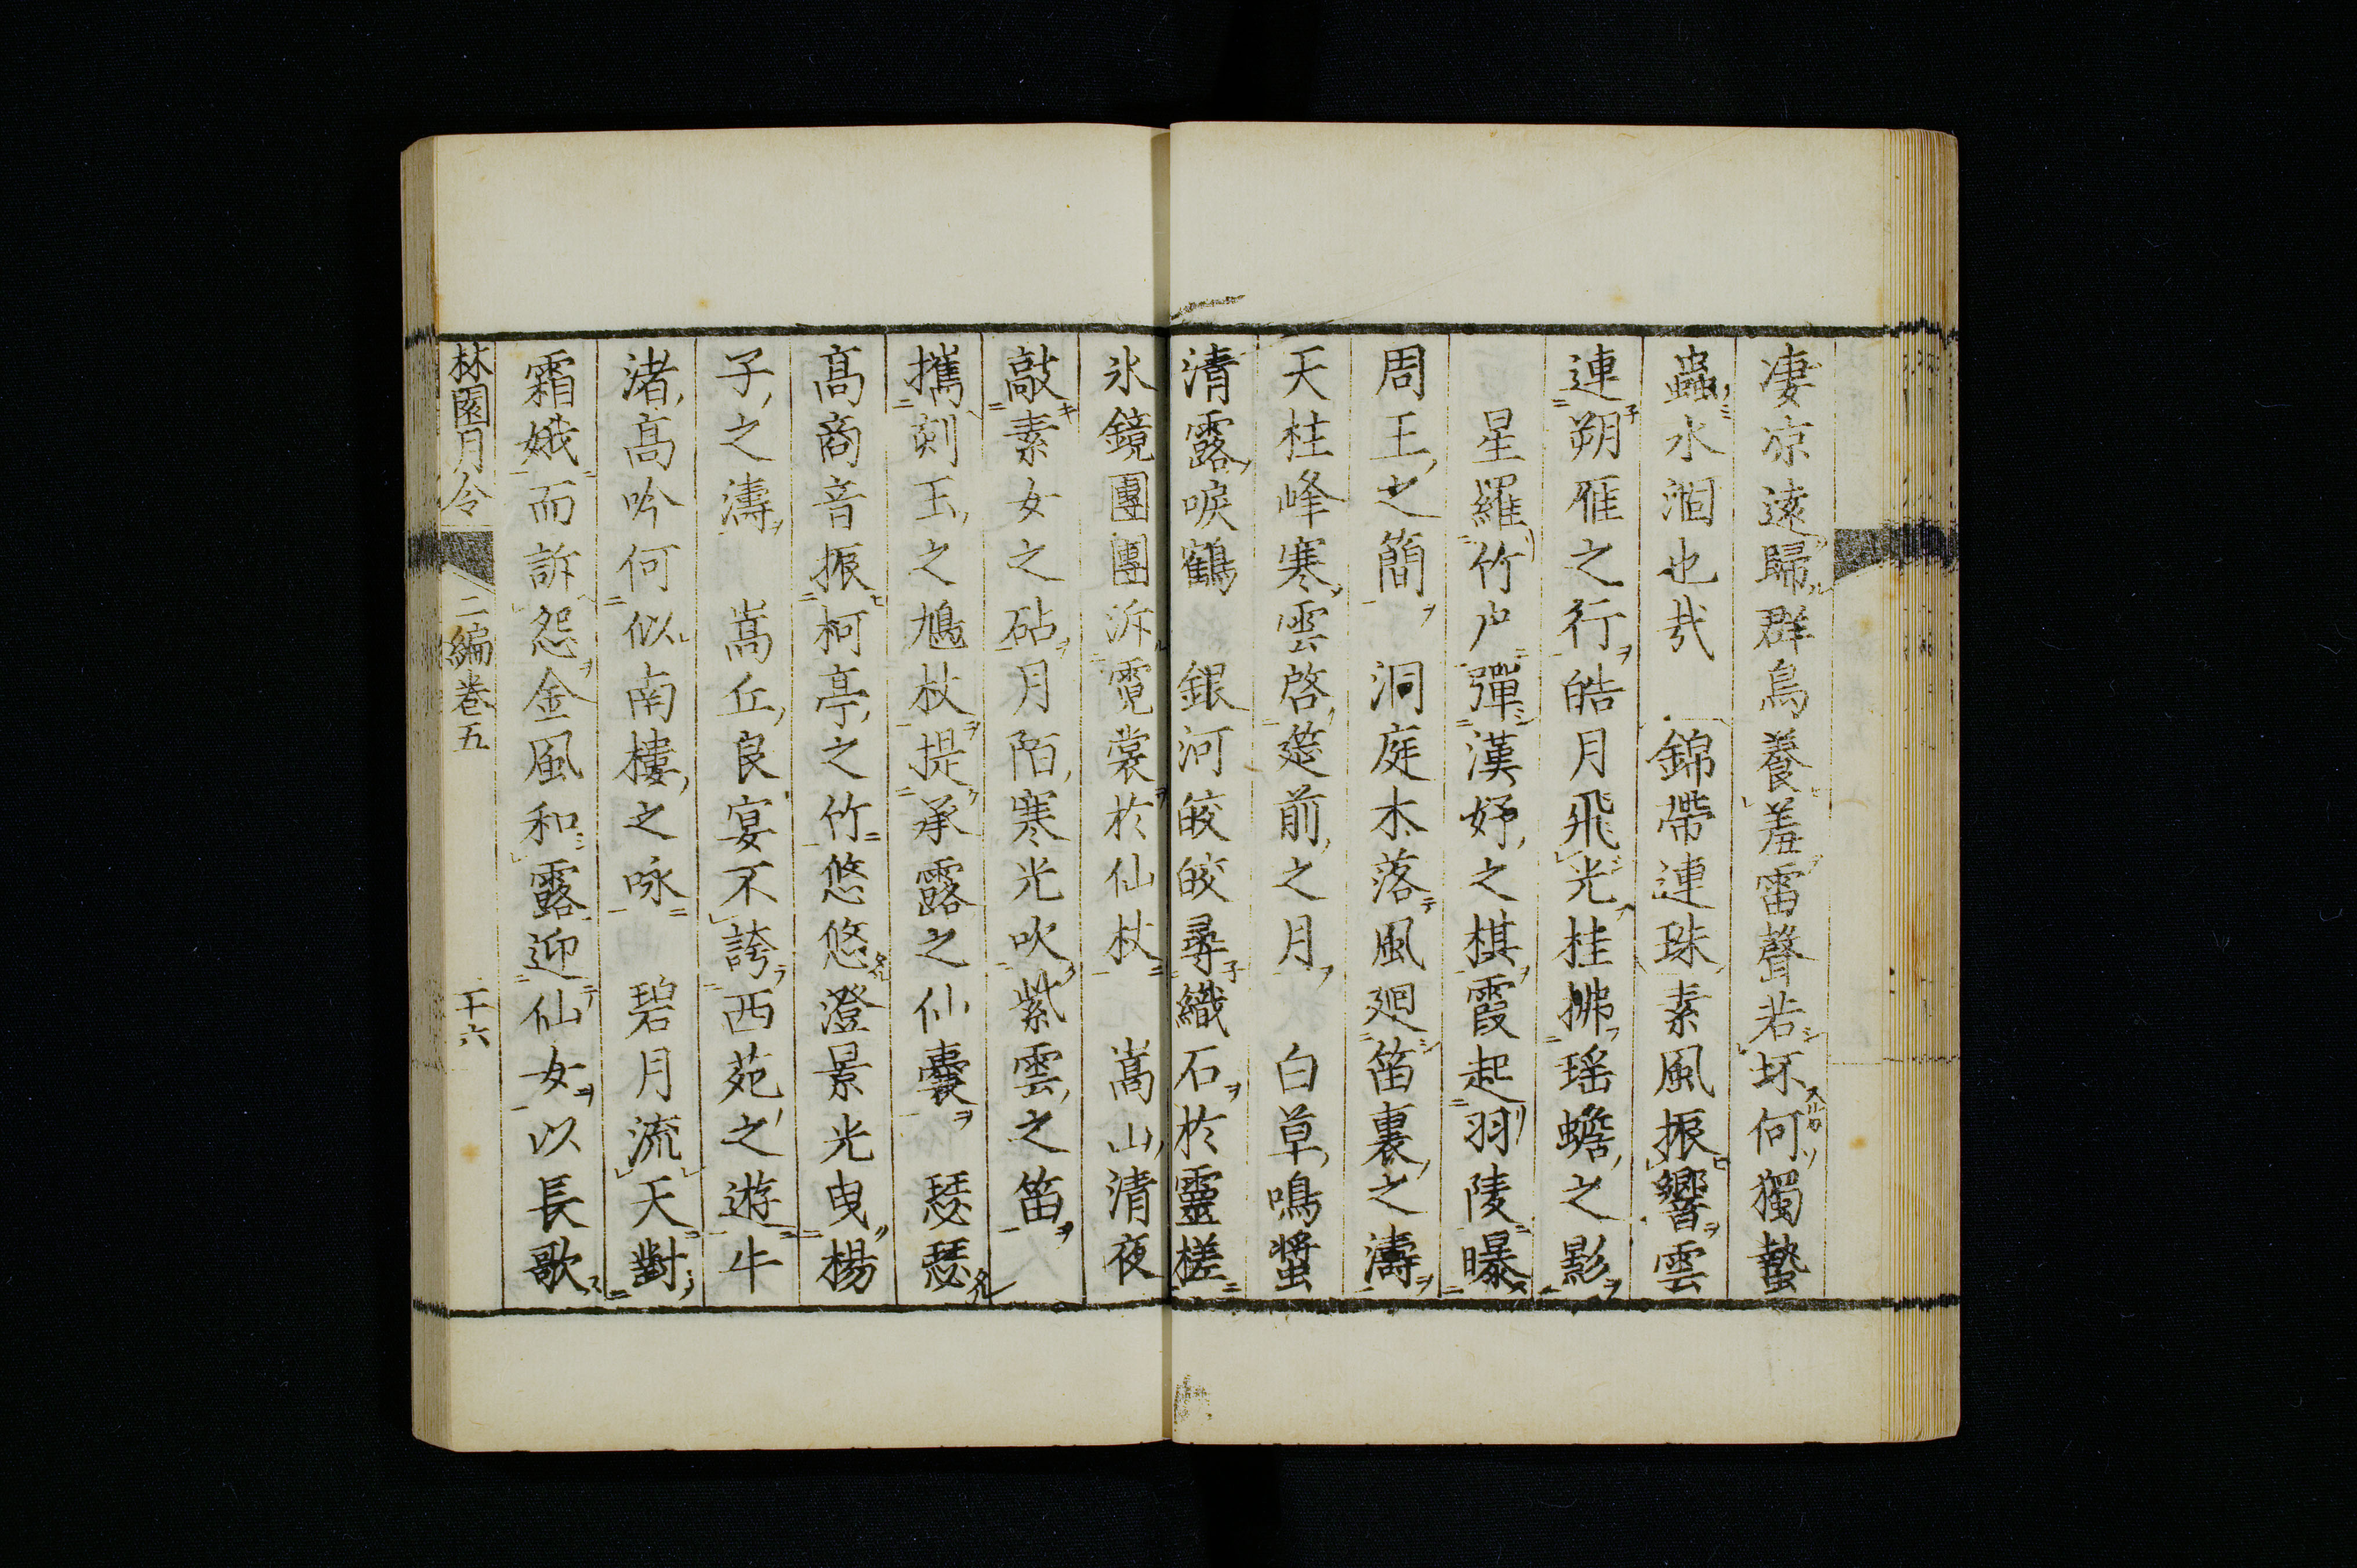 凄凉遠歸群鳥養羞雷聲若坏何獨蟄
蟲水涸也哉　錦帶連珠素風振響雲
連朔雁之行皓月飛光桂拂瑶蟾之影
星羅竹戸彈漢妤之棋霞起羽陵曝
周王之簡　洞庭木落風廻笛裏之濤
天柱峰寒雲啓筵前之月　白草鳴螀
清露唳鶴　銀河皎皎尋織石於靈槎
氷鏡團團泝霓裳於仙杖　嵩山清夜
敲素女之砧月陌寒光吹紫雲之笛
攜刻玉之鳩杖提承露之仙囊　瑟瑟
高商音振柯亭之竹悠悠澄景光曳楊
子之濤　嵩丘良宴不誇西苑之遊牛
渚高吟何似南樓之咏　碧月流天對
霜娥而訴怨金風和露迎仙女以長歌
林園月令　二編卷五　十六